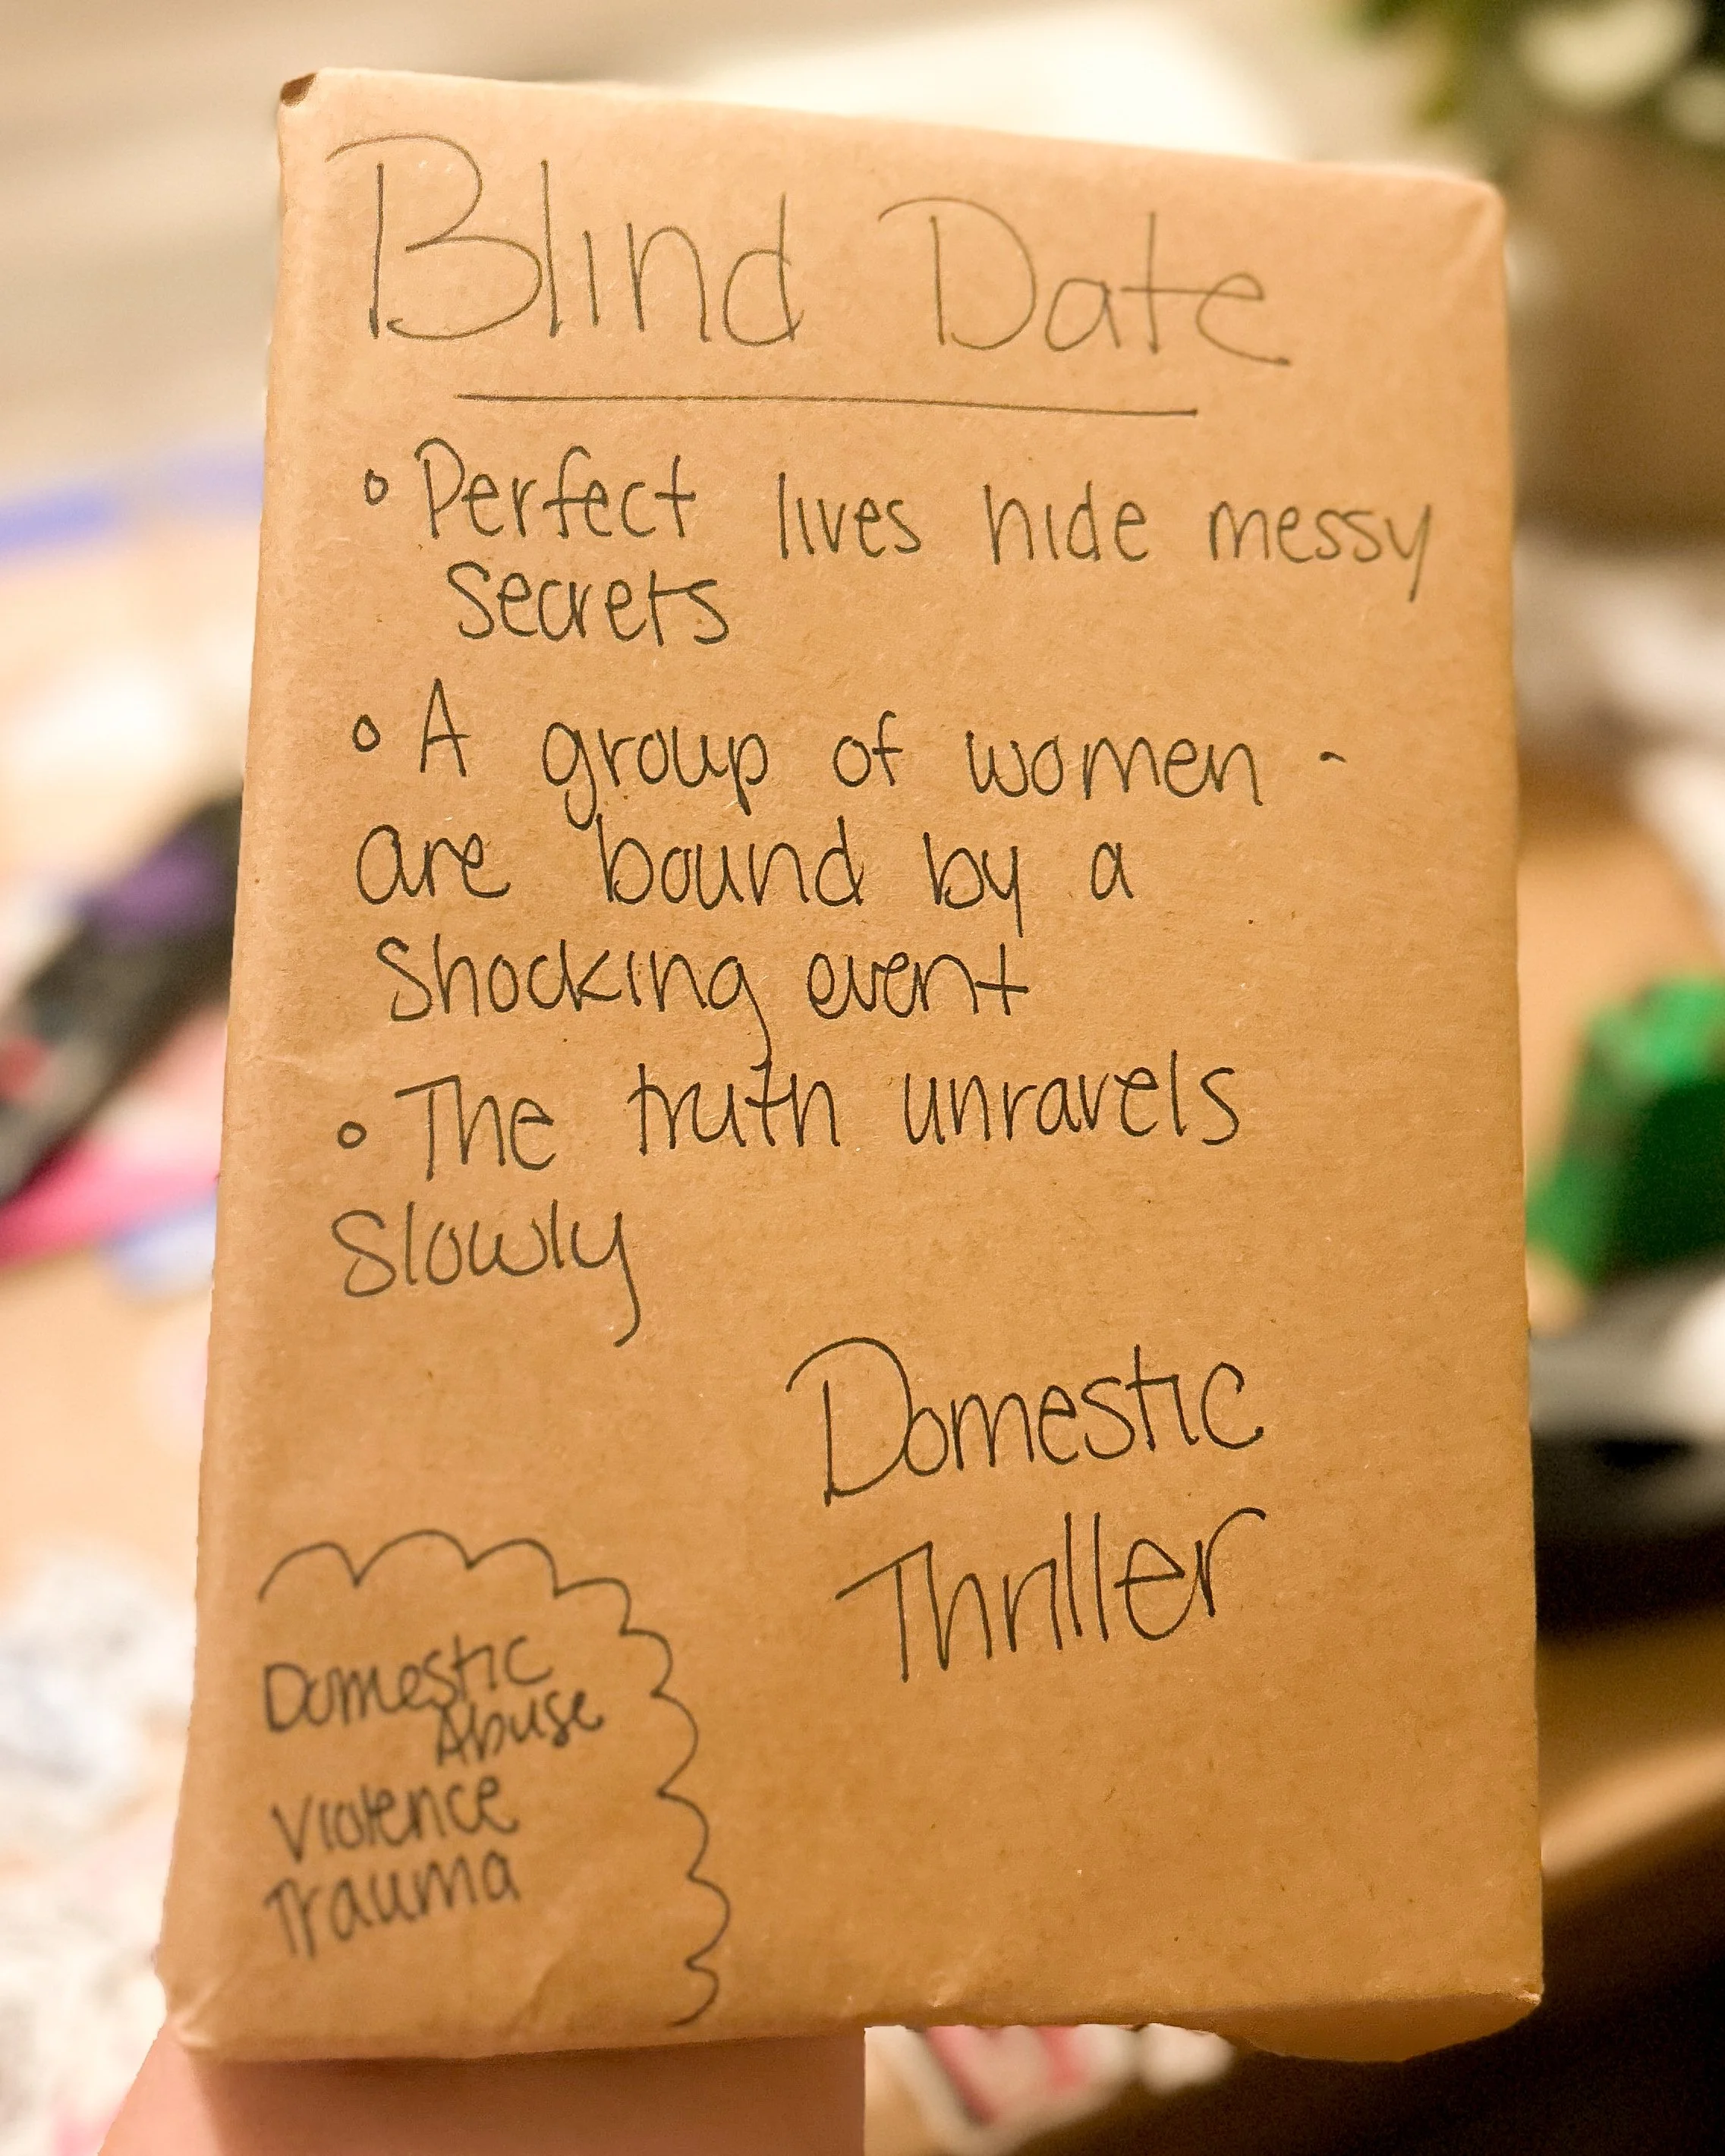 Blind Date
° Perfect lives hide messy
secrets
° A group of women -
are bound by a
Shocking event
° The truth unravels
Slowly
Domestic
Thriller
Domestic
Abuse
Violence
Trauma